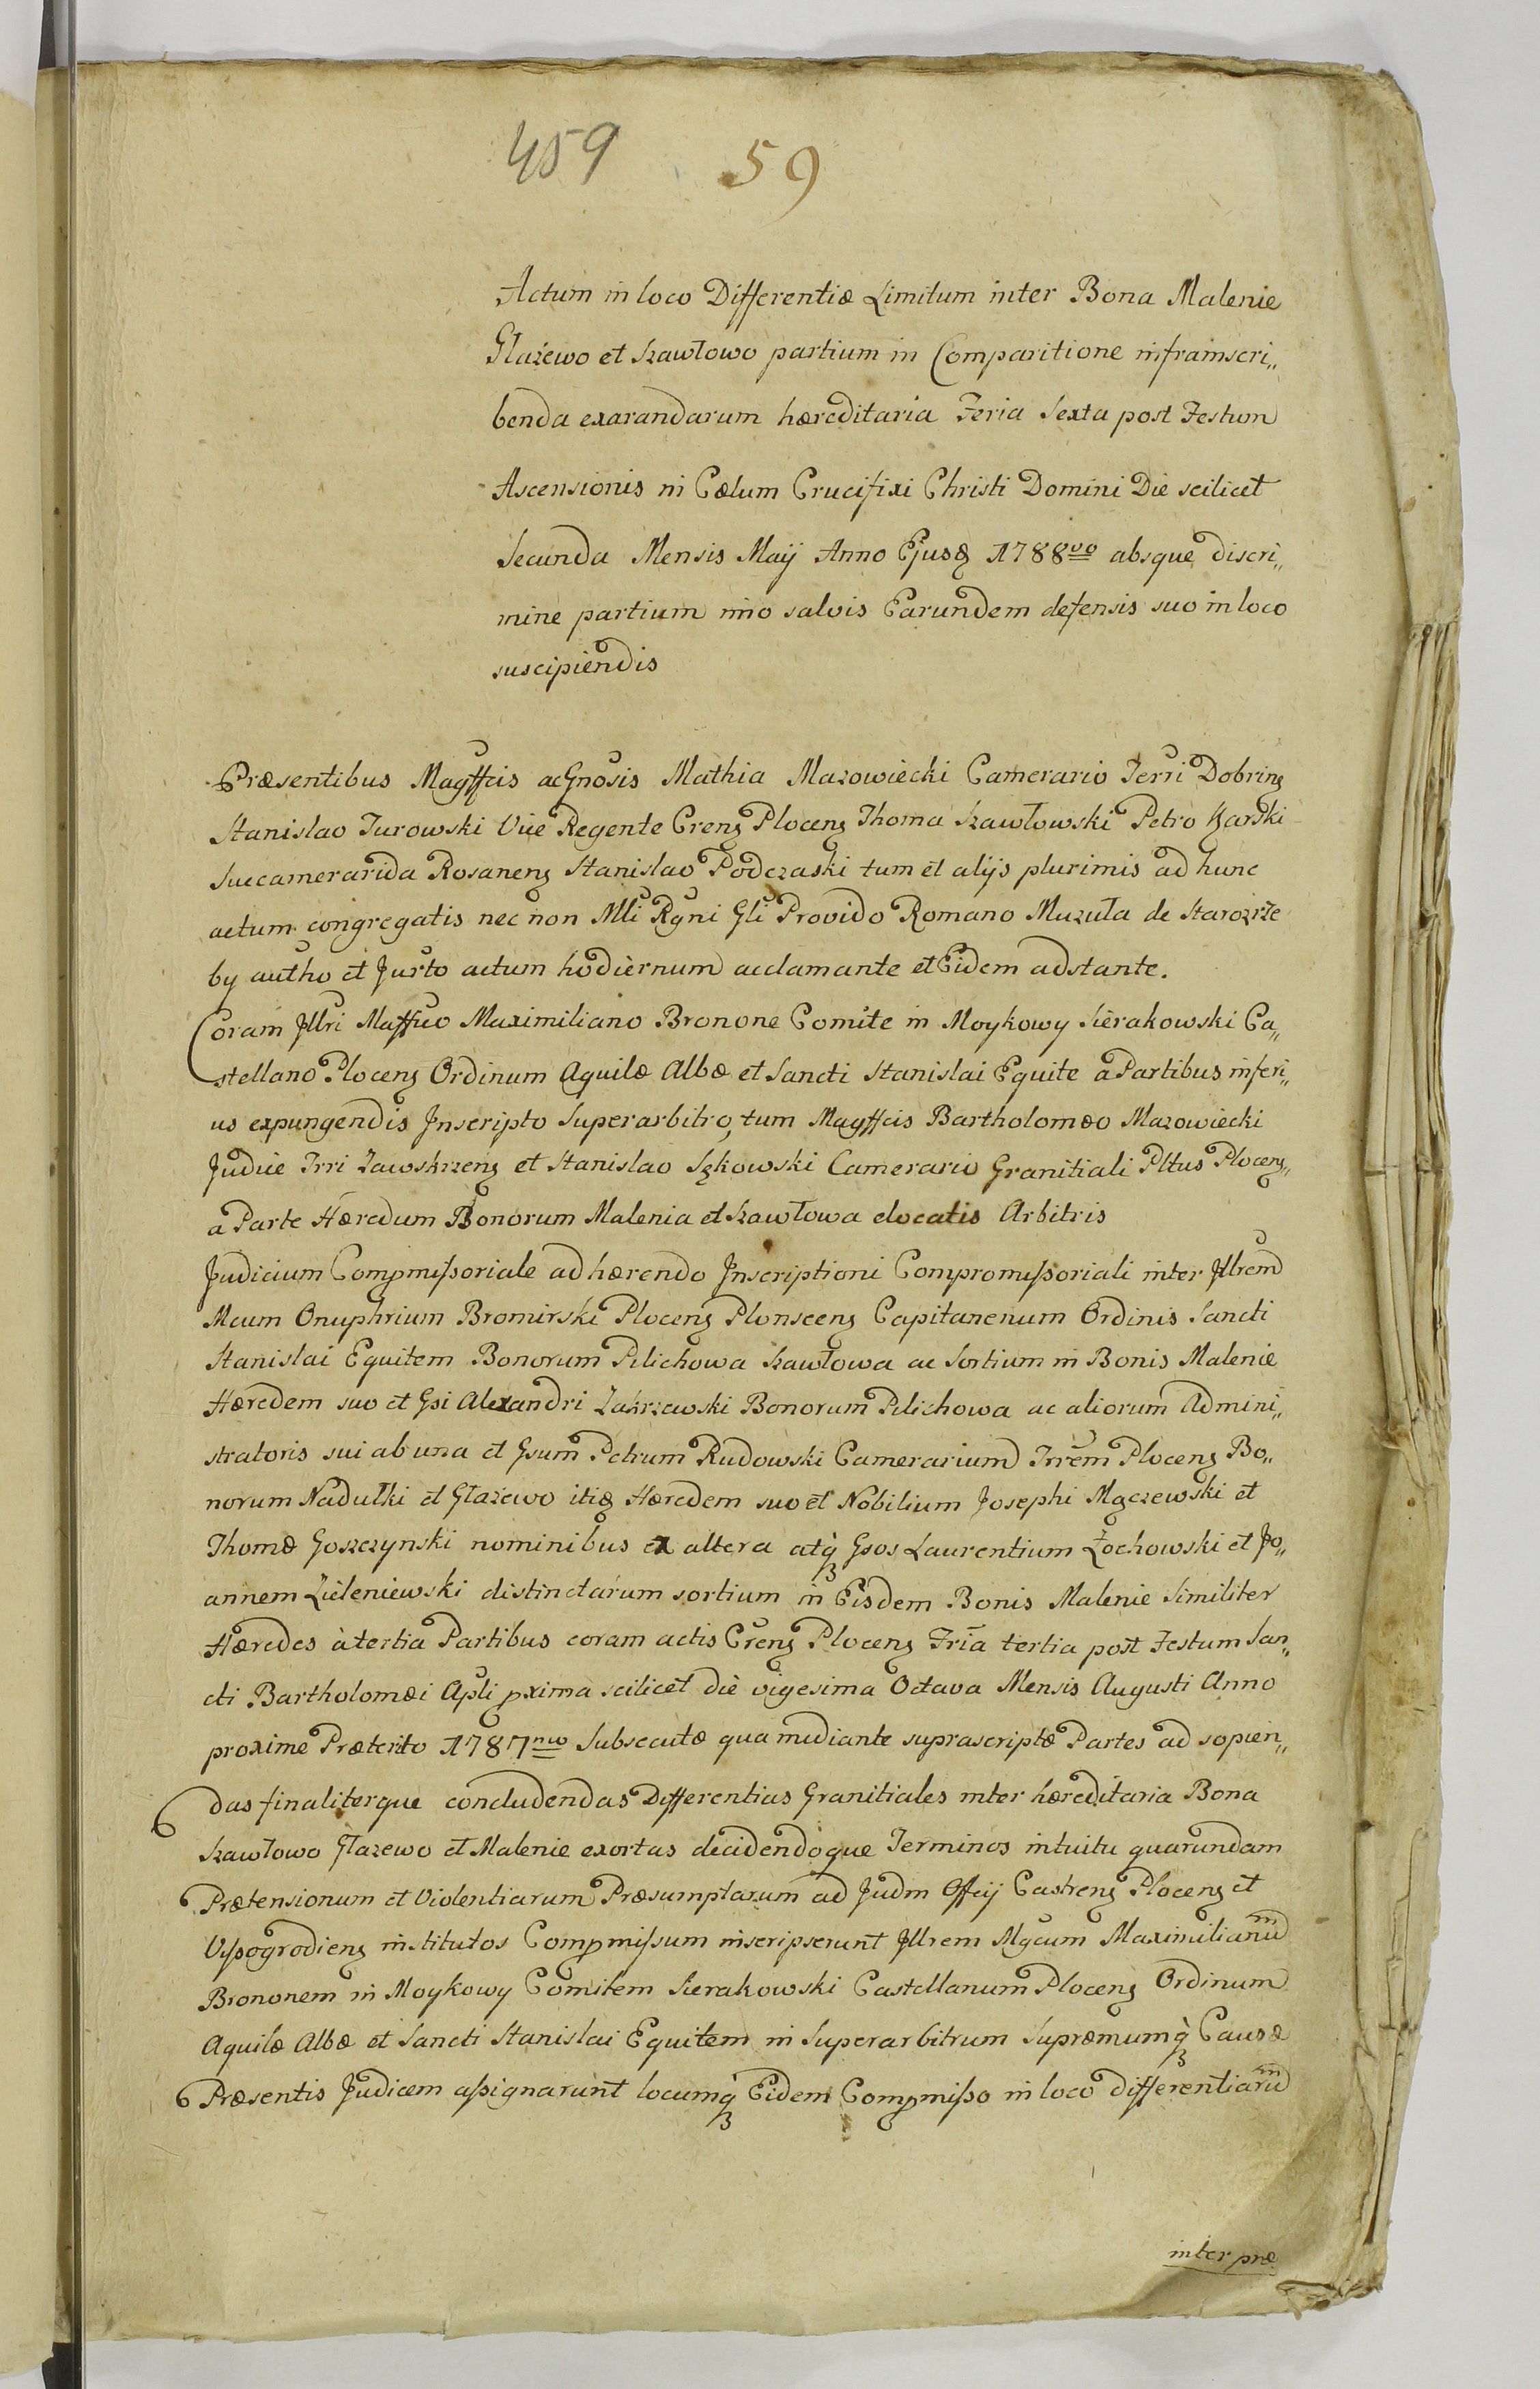 459 59
Actum in loco Differentiæ Limitum inter Bona Malenie
Głażewo et Szawłowo partium in Comparitione infrainscri„
benda exarandarum hæreditaria Feria Sexta post Festum
Ascensionis in Cœlum Crucifixi Christi Domini Die scilicet
Secunda Mensis Maij Anno Ejusq 1788vo absque discri„
mine partium imo salvis Earundem defensis suo in loco
suscipiendis
Præsentibus Magffcis ac Gnosis Mathia Mazowiecki Camerario Terri Dobrinẽ
Stanislao Turowski Vice Regente Crenẽ Plocenẽ Thoma Szawłowski Petro Karski
Succamerarida Rosanenẽ Stanislao Podczaski tum et alijs plurimis ad hunc
actum congregatis nec non Mli Rgni Gli Provido Romano Muzuła de Starozrze
by autho et Jurto actum hodiernum acclamante et Eidem adstante.
Coram Jllri Maffico Maximiliano Bronone Comite in Moykowy Sierakowski Ca„
stellano Plocenẽ Ordinum Aquilæ Albæ et Sancti Stanislai Equite a Partibus inferi„
us expungendis Jnscripto Superarbitro, tum Magffcis Bartholomæo Mazowiecki
Judice Trri Zawskrzenẽ et Stanislao Sękowski Camerario Granitiali Pltus Plocenẽ„
a Parte Hæredum Bonorum Malenia et Szawłowa elocatis Arbitris
Judicium Compmissoriale adhærendo Jnscriptioni Compromissoriali inter Jllrem
Mcum Onuphrium Bromirski Plocenẽ Plonscenẽ Capitaneum Ordinis Sancti
Stanislai Equitem Bonorum Pilichowa Szawłowa ac Sortium in Bonis Malenie
Hæredem suo et Gsi Alexandri Zakrzewski Bonorum Pilichowa ac aliorum Admini„
stratoris sui ab una et Gsum Petrum Rudowski Camerarium Trrem Plocenẽ Bo„
norum Nadułki et Głazewo itiq Hæredem suo et Nobilium Josephi Mączewski et
Thomæ Goszczynski nominibus ex altera atq Gsos Laurentium Żochowski et Jo„
annem Zieleniewski distinctarum sortium in Eisdem Bonis Malenie Similiter
Hæredes à tertia Partibus coram actis Crenẽ Plocenẽ Fria tertia post Festum San„
cti Bartholomæi Apli pxima scilicet die vigesima Octava Mensis Augusti Anno
proxime Præterito 1787mo Subsecutæ qua mediante suprascriptæ Partes ad sopien„
das finaliterque concludendas Differentias Granitiales inter hæreditaria Bona
Szawłowo Głazewo et Malenie exortas decidendoque Terminos intuitu quarundam
Prætensionum et Violentiarum Præsumptarum ad Judm Offcij Castrenẽ Plocenẽ et
Vyssogrodienẽ institutos Compmissum inscripserunt Jllrem Mgcum Maximilianum
Brononem in Moykowy Comitem Sierakowski Castellanum Plocenẽ Ordinum
Aquilæ Albæ et Sancti Stanislai Equitem in Superarbitrum Supræmumq Causæ
Præsentis Judicem assignarunt locumq Eidem Compmisso in loco differentiarum
inter præ